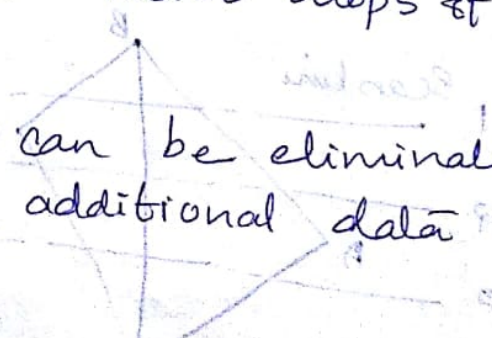 of
can be eliminat
additional data